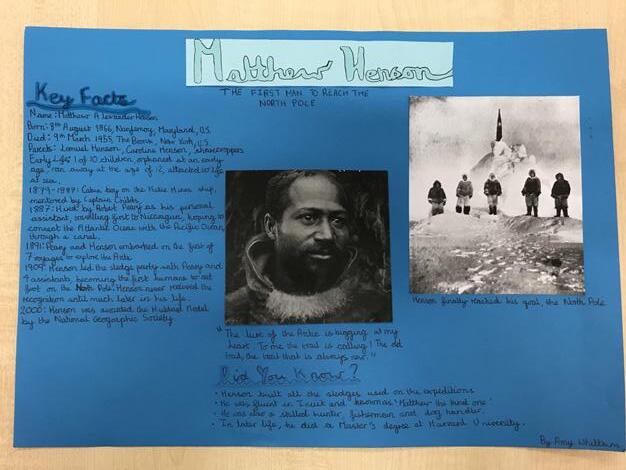 Matthew Henson
THE FIRST MAN TO REACH THE
NORTH POLE
Key Facts
Name: Matthew Alexander Henson
Born: 8th August 1866, Nanjemoy, Maryland, U.S.
Died: 9th March 1955, The Bronx, New York, U.S.
Parents: Lemuel Henson, Caroline Henson, sharecroppers
Early Life: 1 of 10 children, orphaned at an early
age, ran away at the age of 12, attracted to life
at sea.
1879-1887: Cabin boy on the Katie Hines ship,
mentored by Captain Childs.
1887: Hired by Robert Peary as his personal
assistant, travelling first to Nicaragua, hoping to
connect the Atlantic Ocean with the Pacific Ocean
through a canal.
1891: Peary and Henson embarked on the first of
7 voyages to explore the Arctic
1909: Henson led the sledge party with Peary and
4 assistants, becoming the first humans to set
foot on the North Pole. Henson never received the
recognition until much later in his life.
2000: Henson was awarded the Hubbard Medal
by the National Geographic Society.
Henson finally reached his goal, the North Pole
"The lure of the Arctic is tugging at my
heart. To me the trail is calling! The old
trail, the trail that is always new."
Did You Know?
• Henson built all the sledges used on the expeditions
• He was fluent in Inuit and known as 'Matthew the kind one'
• He was also a skilled hunter, fisherman and dog handler.
• In later life, he did a Master's degree at Harvard University.
By Amy